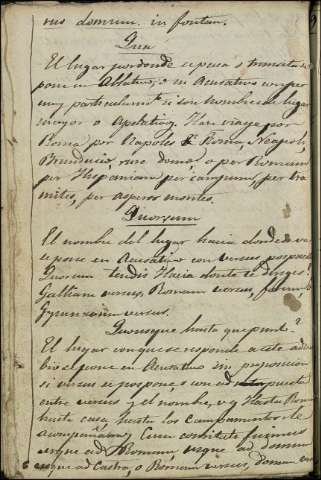 rus domum. in forum.
Qua
El lugar por donde se pasa o transita se
pone en Ablativo, o en Acusativo con per
muy particularmte si son nombres de lugar
mayor o Apelativos. Haz viaje por
Roma por Napoles & Roma, Neapoli,
Brundusio, rure domo, o per Romam
per Hispaniam per campum, per tra
mites, per asperos montes.
Quorsum
El nombre del lugar hacia donde se va
se pone en Acusativo con versus pospuesto
Quorsum tendis Hacia donde te diriges?
Galliam versus, Romam versus, forum
versus.
Quousque hasta que punto?
El lugar con que se responde a este adver
bio se pone en Acusativo sin preposicion
si versus se pospone, o con ad puesta
entre versus y el nombre, v g Hasta Roma
hasta casa hasta los campamentos le
acompañaron Eum comitati fuimus
usque ad Romam, usque ad domum
usque ad Castra, o Romam versus, domum